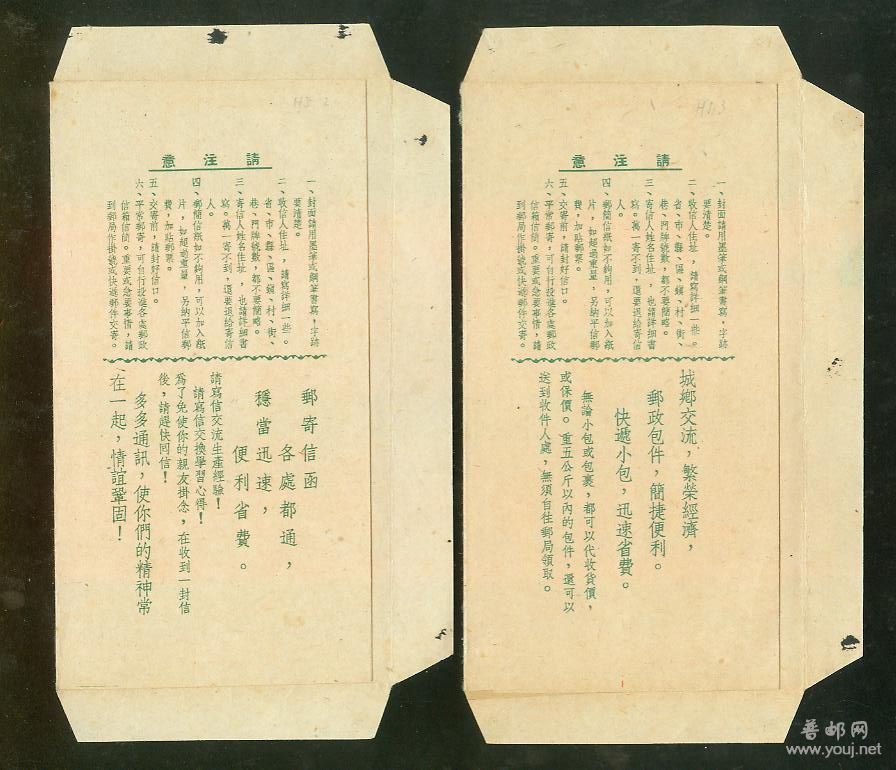 HJ 2
請注意
一、封面請用墨筆或鋼筆書寫，字跡
要清楚。
二、收信人住址，請寫詳細一些。
省、市、縣、區、鎮、村、街、
巷、門牌號數，都不要簡略。
三、寄信人姓名住址，也請詳細書
寫。萬一寄不到，還要退給寄信
人。
四、郵簡信紙如不夠用，可以加入紙
片，如超過重量，另納平信郵
費，加貼郵票。
五、交寄前，請封好信口。
六、平常郵寄，可自行投進各處郵政
信箱信筒。重要或急要事情，請
到郵局作掛號或快遞郵件交寄。
郵寄信函
各處都通，
穩當迅速，
便利省費。
請寫信交流生產經驗！
請寫信交換學習心得！
為了免使你的親友掛念，在收到一封信
後，請趕快回信！
多多通訊，使你們的精神常
在一起，情誼鞏固！
HJ.3
請注意
一、封面請用墨筆或鋼筆書寫，字跡
要清楚。
二、收信人住址，請寫詳細一些。
省、市、縣、區、鎮、村、街、
巷、門牌號數，都不要簡略。
三、寄信人姓名住址，也請詳細書
寫。萬一寄不到，還要退給寄信
人。
四、郵簡信紙如不夠用，可以加入紙
片，如超過重量，另納平信郵
費，加貼郵票。
五、交寄前，請封好信口。
六、平常郵寄，可自行投進各處郵政
信箱信筒。重要或急要事情，請
到郵局作掛號或快遞郵件交寄。
城鄉交流，繁榮經濟，
郵政包件，簡捷便利。
快遞小包，迅速省費。
無論小包或包裹，都可以代收貨價，
或保價。重五公斤以內的包件，還可以
送到收件人處，無須自往郵局領取。
普邮网
www.youj.net